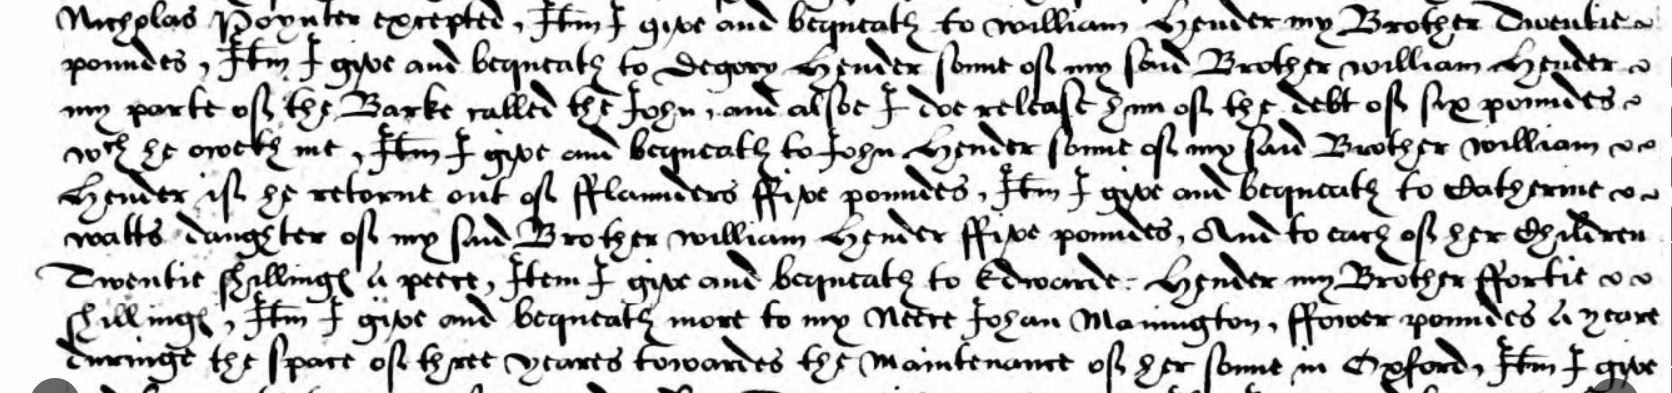 Nicholas Poynter excepted, Itm I give and bequeath to william Hender my Brother Twentie
poundes, Itm I give and bequeath to Degory Hender sonne of my said Brother william Hender
my parte of the Barke called the John, and alsoe I doe release him of the debt of six poundes
wch he oweth me, Itm I give and bequeath to John Hender sonne of my said Brother william
Hender if he retorne out of fflaunders ffive poundes, Itm I give and bequeath to Catherine
watts daughter of my said Brother william Hender ffive poundes, And to each of her Children
Twentie shillings a peece, Item I give and bequeath to Edwarde Hender my Brother ffortie
shillings, Itm I give and bequeath more to my Neece Johan Manington, ffower poundes a yeare
duringe the space of three yeares towardes the Maintenance of her sonne in Oxford, Itm I give